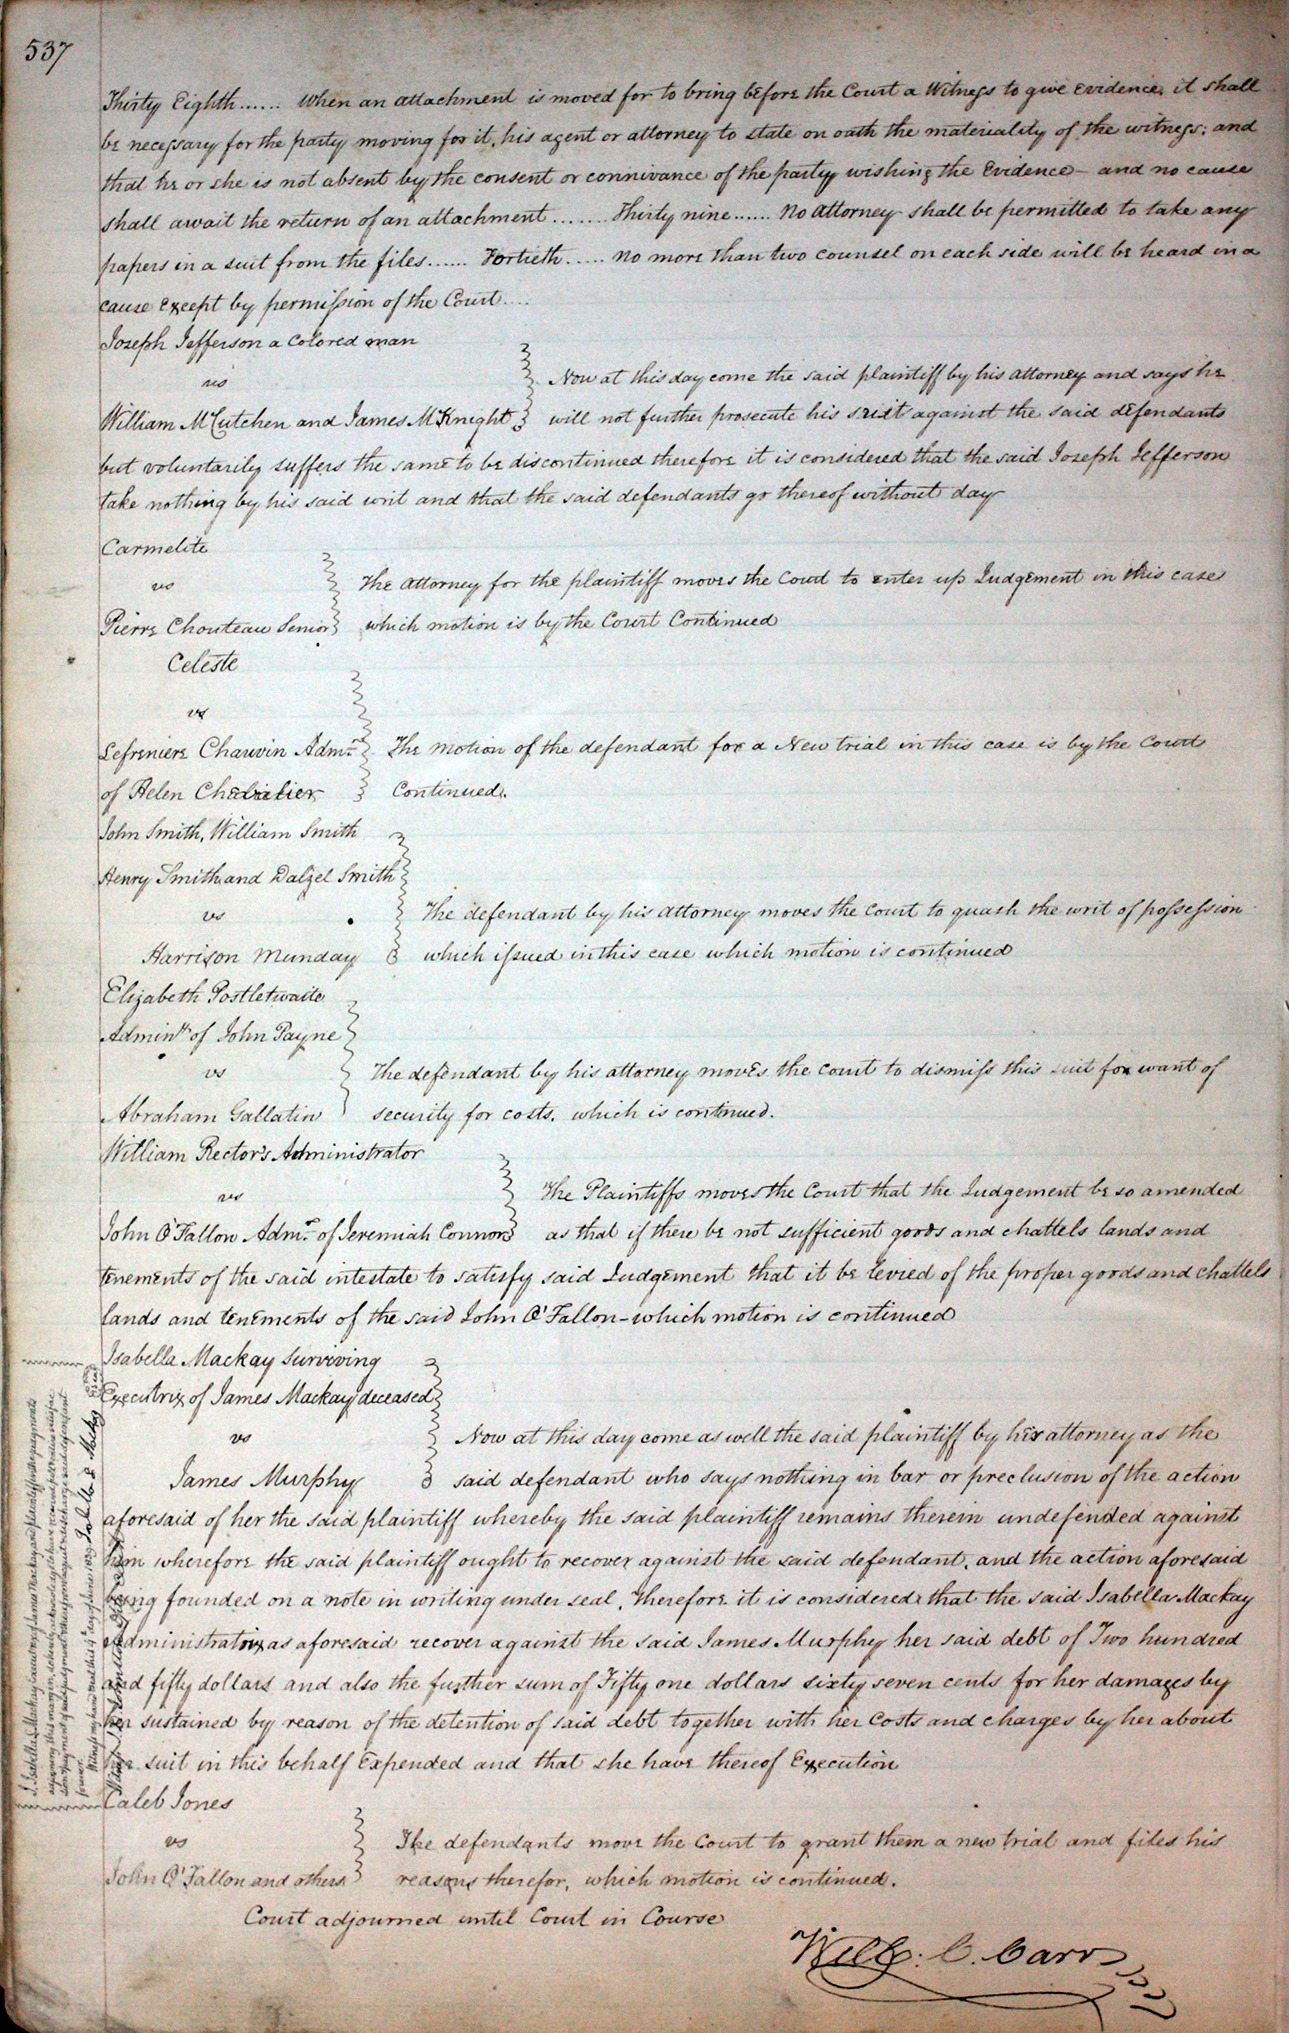 537
Thirty Eighth...... When an attachment is moved for to bring before the Court a Witness to give evidence, it shall
be necessary for the party moving for it, his agent or attorney to state on oath the materiality of the witness; and
that he or she is not absent by the consent or connivance of the party wishing the Evidence – and no cause
shall await the return of an attachment ....... Thirty nine ...... No Attorney shall be permitted to take any
papers in a suit from the files...... Fortieth..... no more than two counsel on each side will be heard in a
cause except by permission of the Court....
Joseph Jefferson a Colored man
vs
Now at this day come the said plaintiff by his attorney and says he
William McCutchen and James McKnight will not further prosecute his suit against the said defendants
but voluntarily suffers the same to be discontinued therefore it is considered that the said Joseph Jefferson
take nothing by his said writ and that the said defendants go thereof without day
Carmelite
vs The attorney for the plaintiff moves the Court to enter up Judgement in this case
Pierre Chouteau Senior which motion is by the Court Continued
Celeste
vs
Lefreniere Chauvin Admr. The motion of the defendant for a New trial in this case is by the Court
of Helen Chevalier Continued.
John Smith, William Smith
Henry Smith and Dalzel Smith
vs The defendant by his attorney moves the Court to quash the writ of possession
Harrison Munday which issued in this case which motion is continued
Elizabeth Postletwaite
Adminx of John Payne
vs The defendant by his attorney moves the court to dismiss this suit for want of
Abraham Gallatin security for costs. which is continued.
William Rector's Administrator
vs The Plaintiffs moves the Court that the Judgement be so amended
John O'Fallon Admr. of Jeremiah Connor as that if there be not sufficient goods and chattels lands and
tenements of the said intestate to satisfy said Judgement that it be levied of the proper goods and chattels
lands and tenements of the said John O'Fallon – which motion is continued
Isabella Mackay Surviving
Executrix of James Mackay deceased
vs Now at this day come as well the said plaintiff by her attorney as the
James Murphy said defendant who says nothing in bar or preclusion of the action
aforesaid of her the said plaintiff whereby the said plaintiff remains therein undefended against
him wherefore the said plaintiff ought to recover against the said defendant, and the action aforesaid
being founded on a note in writing under seal, Therefore it is considered that the said Isabella Mackay
Administratrix as aforesaid recover against the said James Murphy her said debt of Two hundred
and fifty dollars and also the further sum of Fifty one dollars sixty seven cents for her damages by
her sustained by reason of the detention of said debt together with her Costs and charges by her about
her suit in this behalf Expended and that she have thereof Execution
Caleb Jones
vs The defendants move the Court to grant them a new trial and files his
John O'Fallon and others reasons therefor, which motion is continued.
Court adjourned until Court in Course
Will: C. Carr
I, Isabella Mackay Executrix of James Mackay and plaintiff in the
Isabella Mackay